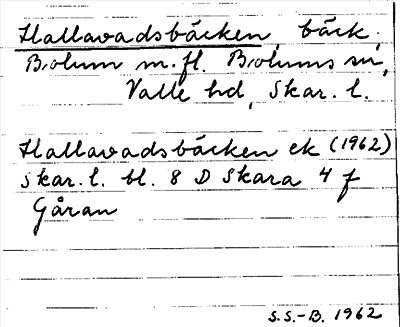 Hallavadsbäcken, bäck.
Bolum m.fl. Bolums sn,
Valle hd, Skar. l.
Hallavadsbäcken ek (1962)
Skar. l. bl. 8 D Skara 4 f
Gåran
S.S.-B. 1962